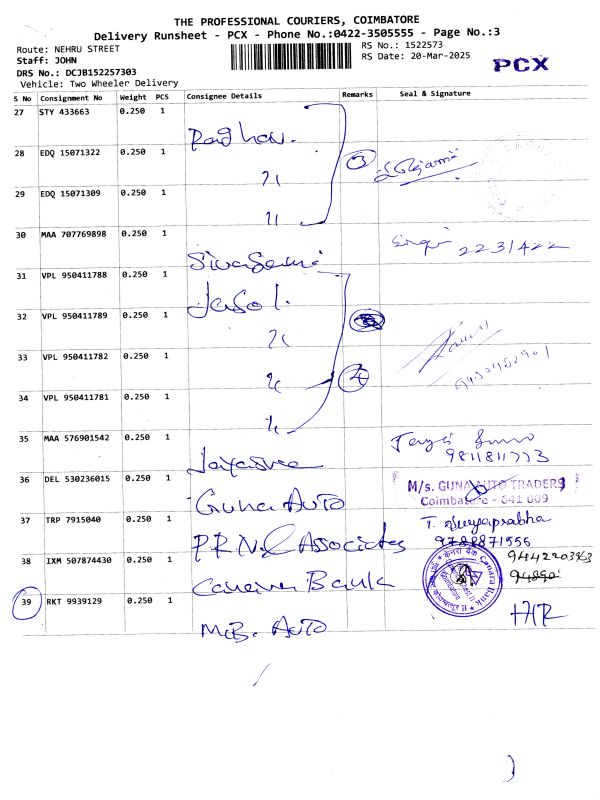 THE PROFESSIONAL COURIERS, COIMBATORE
Delivery Runsheet - PCX - Phone No.:0422-3505555 - Page No.:3
Route: NEHRU STREET
RS No.: 1522573
Staff: JOHN
RS Date: 20-Mar-2025
PCX
DRS No.: DCJB152257303
Vehicle: Two Wheeler Delivery
S No Consignment No Weight PCS Consignee Details Remarks Seal & Signature
27 STY 433663 0.250 1
Raghav.
28 EDQ 15071322 0.250 1
3
29 EDQ 15071309 0.250 1
30 MAA 707769898 0.250 1
2231422
31 VPL 950411788 0.250 1
32 VPL 950411789 0.250 1
33 VPL 950411782 0.250 1
4
34 VPL 950411781 0.250 1
35 MAA 576901542 0.250 1
Jayasree
9811811773
36 DEL 530236015 0.250 1
Guna Auto
M/s. GUNA AUTO TRADERS
Coimbatore - 641 009
37 TRP 7915040 0.250 1
P.R.N. & Associates
T. Suryaprabha
9788871556
38 IXM 507874430 0.250 1
Canara Bank
केनरा बैंक Canara Bank
39 RKT 9939129 0.250 1
M.B. Auto